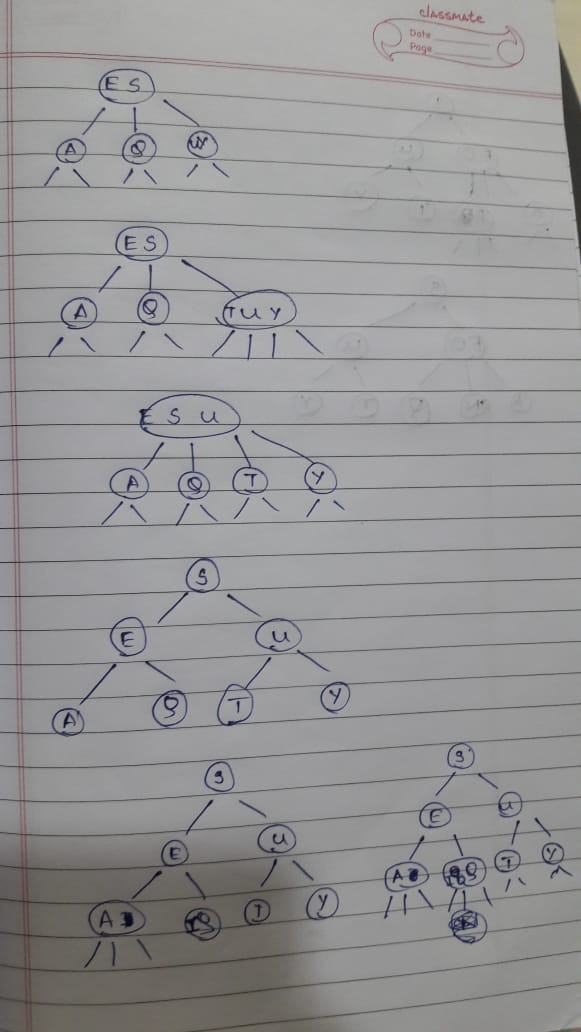 classmate
Date
Page
E S
A Q
E S
A Q T U Y
E S U
A Q T Y
S
E U
A Q T Y
S
E U
A T Y
S
E U
A T Y